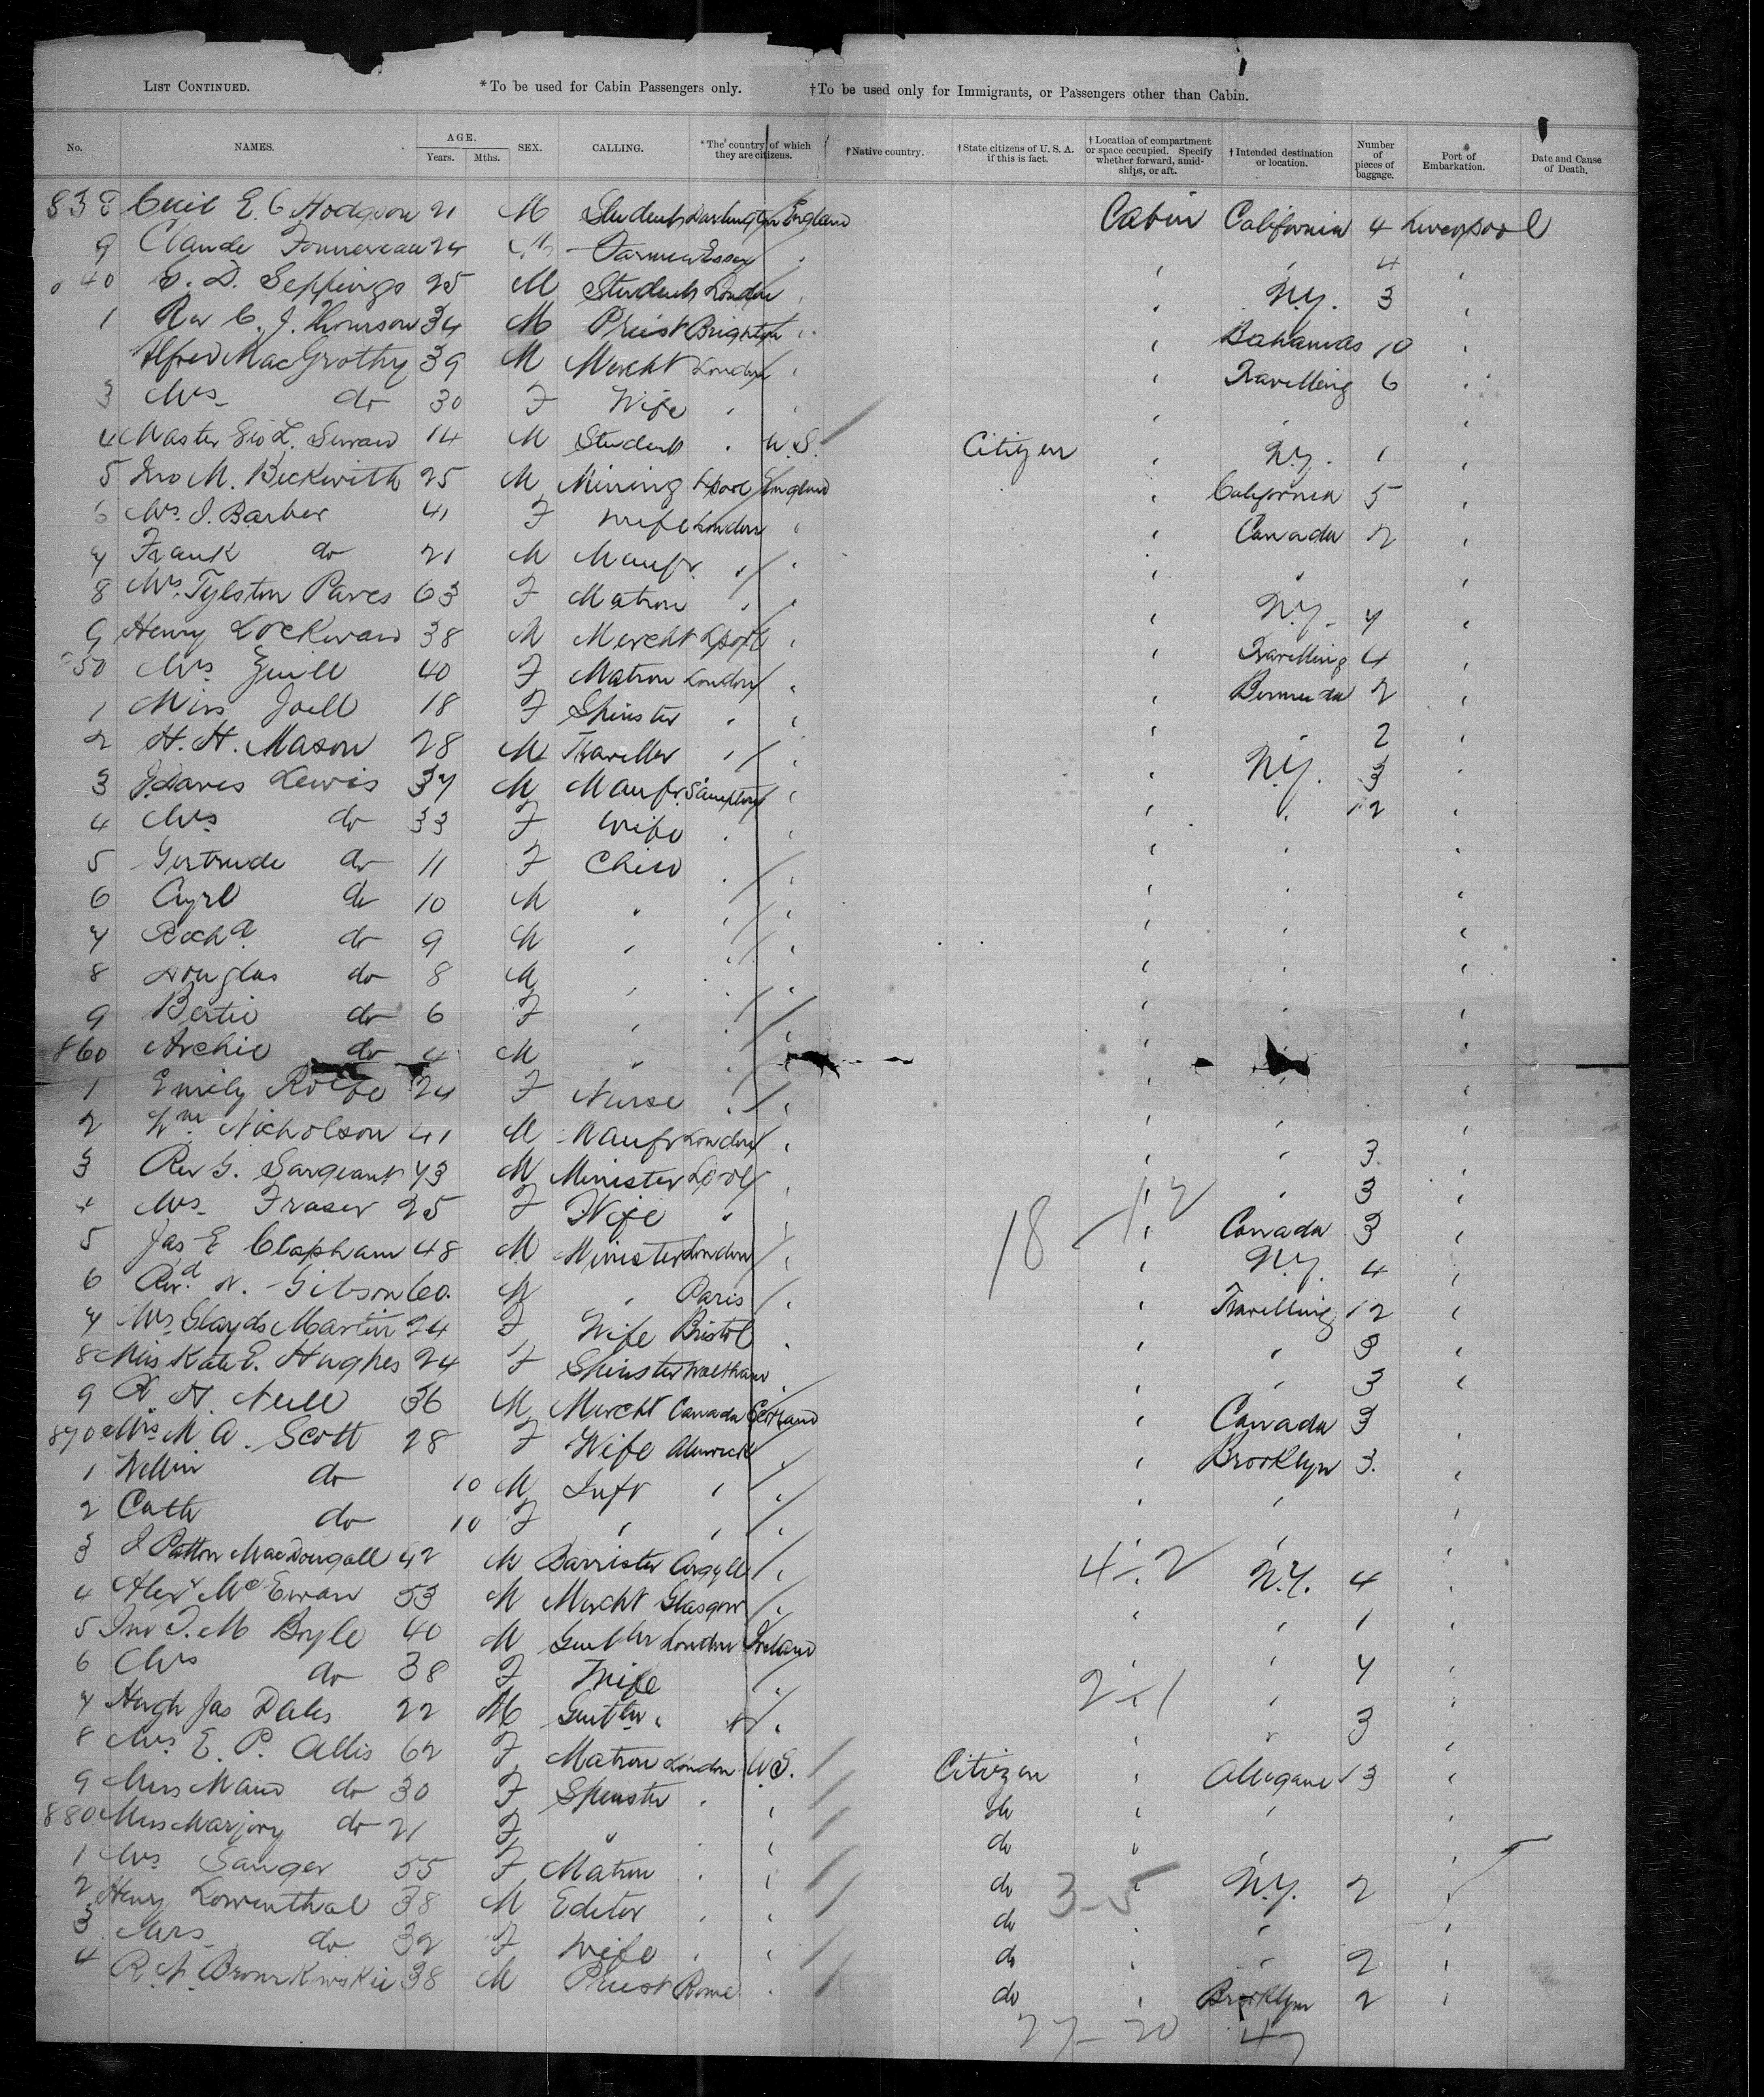 LIST CONTINUED. *To be used for Cabin Passengers only. †To be used only for Immigrants, or Passengers other than Cabin.
No. NAMES. AGE. Years. Mths. SEX. CALLING. *The country of which they are citizens. †Native country. †State citizens of U. S. A. if this is fact. †Location of compartment or space occupied. Specify whether forward, amidships, or aft. †Intended destination or location. Number of pieces of baggage. Port of Embarkation. Date and Cause of Death.
838 Cecil E. C Hodgson 21 M Student Darlington England Cabin California 4 Liverpool
9 Claude Fonnereau 24 M Farmer Essex " " " 4 "
40 E. D. Seppings 25 M Student London " " N.Y. 3 "
1 Rev C. J. 34 M Priest Brighton " " Bahamas 10 "
Alfred MacGrothy 39 M Mercht London " " Travelling 6 "
3 Mrs do 30 F Wife " " " " "
4 Master Geo L. 14 M Student " U.S. Citizen " N.Y. 1 "
5 Jno M. Beckwith 25 M Mining Lpool England " California 5 "
6 Mrs. J. Barber 41 F Wife London " " Canada 2 "
7 Frank do 21 M Manfr. " " " " "
8 Mrs. Tylston Pares 63 F Matron " " " N.Y. 7 "
9 Henry Lockward 38 M Mercht Lpool " " Travelling 4 "
50 Mrs 40 F Matron London " " Bermuda 2 "
1 Miss Joell 18 F Spinster " " " " 2 "
2 H. H. Mason 28 M Traveller " " " N.Y. 3 "
3 Lewis 37 M Manfr. " " " 12 "
4 Mrs do 33 F Wife " " " " "
5 Gertrude do 11 F Child " " " " "
6 Cyrl do 10 M " " " " " "
7 Richd. do 9 M " " " " " "
8 Douglas do 8 M " " " " " "
9 Bertie do 6 F " " " " " "
860 Archie do 4 M " " " " "
1 Emily Rolfe 24 F Nurse " " " " "
2 Wm Nicholson 41 M Manfr London " " " 3 "
3 Rev G. Sargeant 73 M Minister Lpool " " " 3 "
4 Mrs Fraser 25 F Wife " " " Canada 3 "
5 Jas E Clapham 48 M Minister London " " N.Y. 4 "
6 Revd. N. Gibson 60 M " Paris " " Travelling 12 "
7 Mrs Glayds Martin 24 F Wife Bristol " " " 3 "
8 Miss Kate E. Hughes 24 F Spinster Waltham " " " 3 "
9 H. Neill 36 M Mercht Canada Scotland " Canada 3 "
870 Mrs M A. Scott 28 F Wife Alnwick " " Brooklyn 3 "
1 do 10 M Inft " " " " "
2 Cath do 10 F " " " " "
3 J Patton MacDougall 42 M Barrister Argyll " " N.Y. 4 "
4 Alexr McEwan 53 M Mercht Glasgow " " " 1 "
5 Jno J. M Boyle 40 M Gentln London Ireland " " 7 "
6 Mrs do 38 F Wife " " "
7 Hugh Jas Dales 22 M Gentln " " " " 3 "
8 Mrs E. P. Allis 62 F Matron London U.S. Citizen " 13 "
9 Miss Maud do 30 F Spinster " " do " " "
880 Miss Marjory do 21 F " " do " " "
1 Mrs Sanger 55 F Matron " " do " N.Y. 2 "
2 Henry Lowenthal 38 M Editor " " do " " "
3 Mrs do 32 F Wife " " do " " 2 "
4 R. N. 38 M Priest Rome " do " Brooklyn 2 "
18 - 12
4 - 2
2 - 1
3 - 5
27 - 20 47